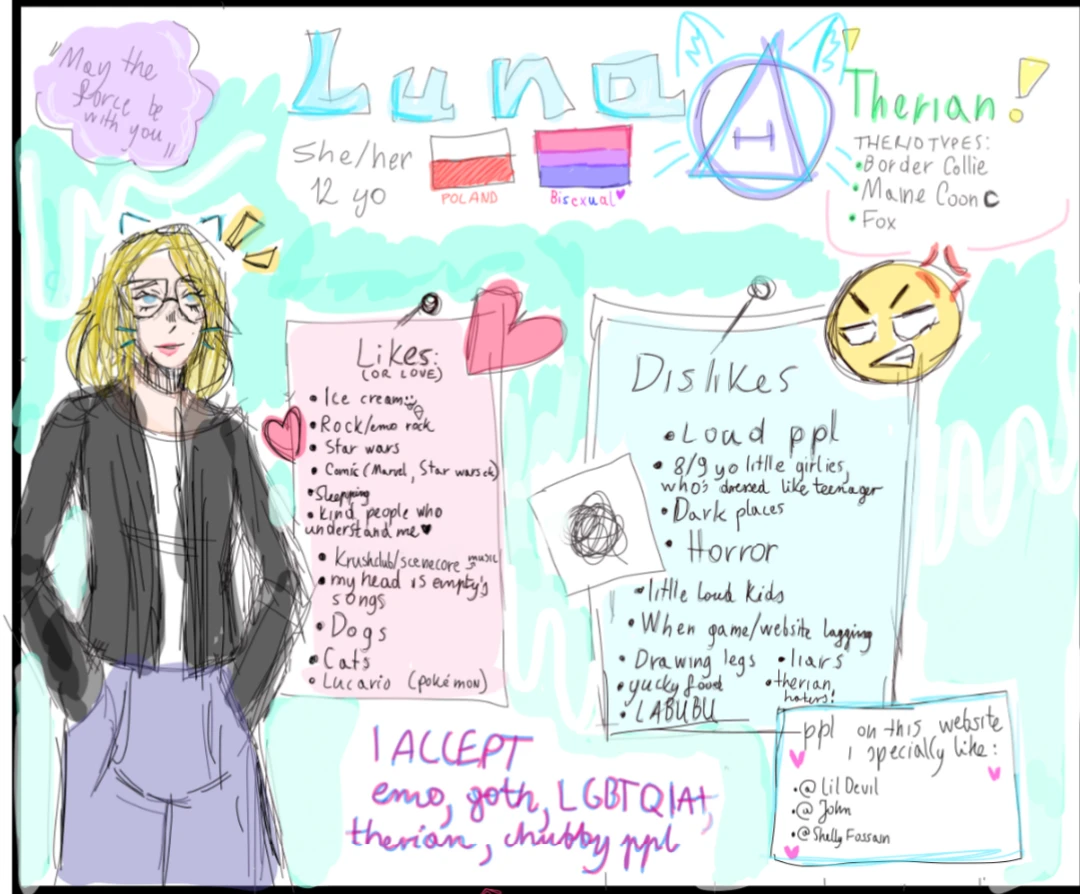 "May the
force be
with you"
Luna
She/her
12 yo
POLAND
Bisexual
Therian!
THERIOTYPES:
• Border Collie
• Maine Coon C
• Fox
Likes:
(OR LOVE)
• Ice cream
• Rock/emo rock
• Star wars
• Comic (Marvel, Star wars
• Sleepping
• kind people who
understand me
• Krushclub/scenecore music
• my head is empty's
songs
• Dogs
• Cats
• Lucario (pokémon)
Dislikes
• Loud ppl
• 8/9 yo little girlies,
who's dressed like teenager
• Dark places
• Horror
• little loud kids
• When game/website lagging
• Drawing legs
• liars
• yucky food
• therian
haters!
• LABUBU
I ACCEPT
emo, goth, LGBTQIA+,
therian, chubby ppl
ppl on this website
I specially like:
• @ Lil Devil
• @ John
• @ Shelly